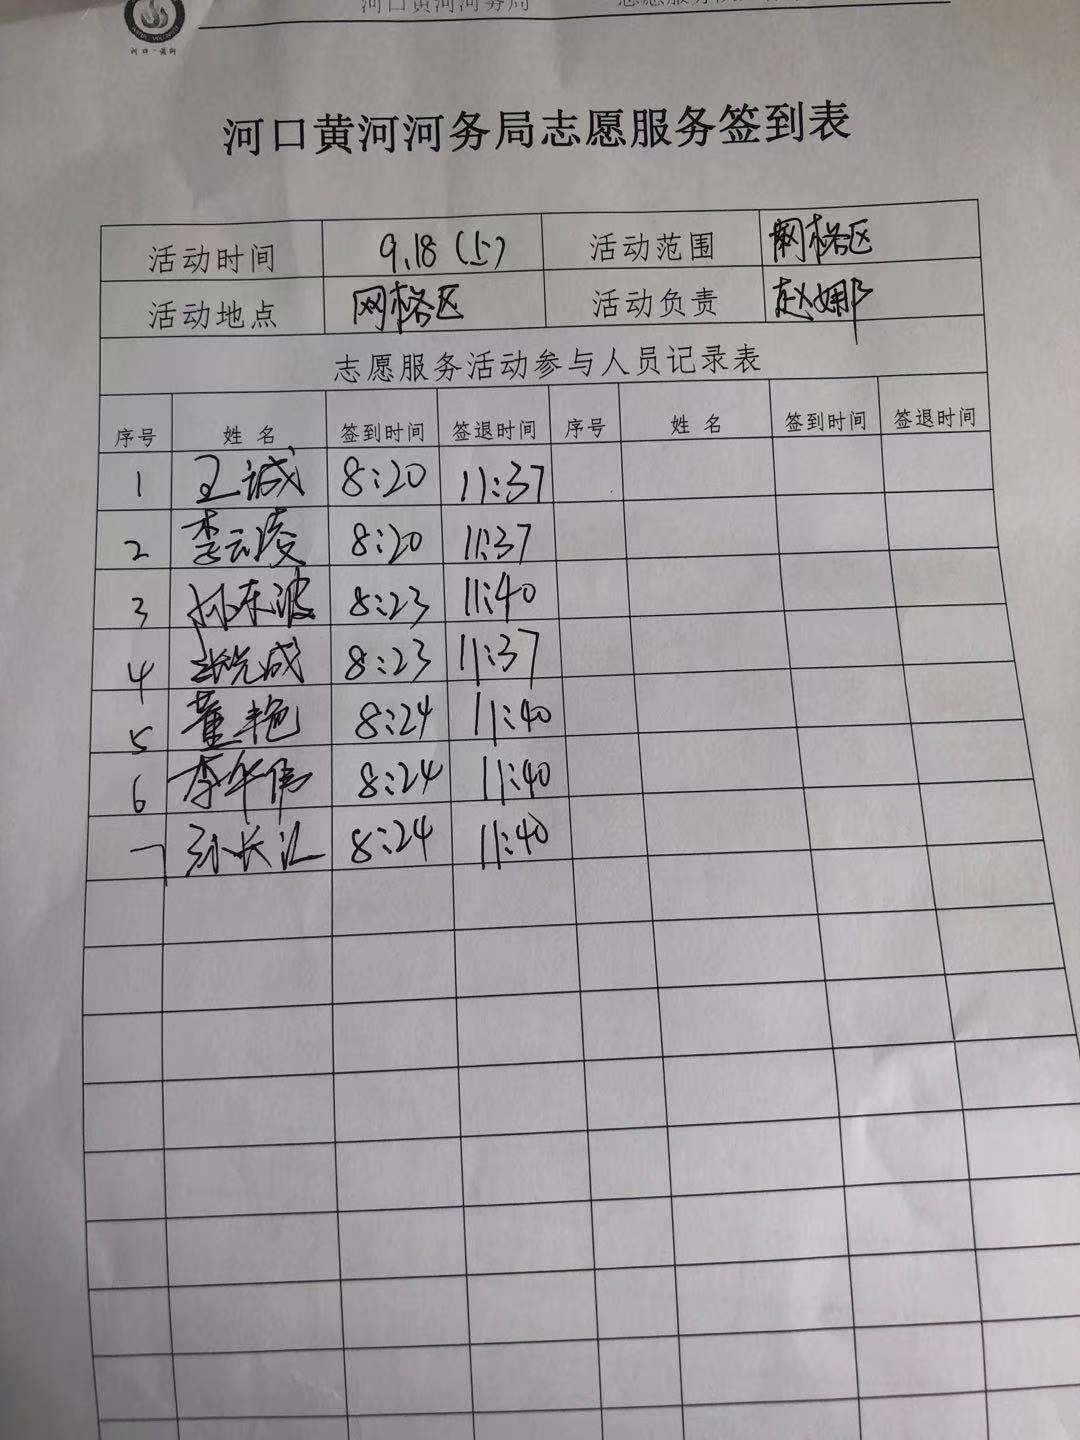 河口·黄河
河口黄河河务局
河口黄河河务局志愿服务签到表
活动时间 9.18(上) 活动范围 网格区
活动地点 网格区 活动负责 赵娜
志愿服务活动参与人员记录表
序号 姓名 签到时间 签退时间 序号 姓名 签到时间 签退时间
1 王诚 8:20 11:37
2 李云凌 8:20 11:37
3 孙东波 8:23 11:40
4 8:23 11:37
5 董艳 8:24 11:40
6 李华伟 8:24 11:40
7 孙长江 8:24 11:40